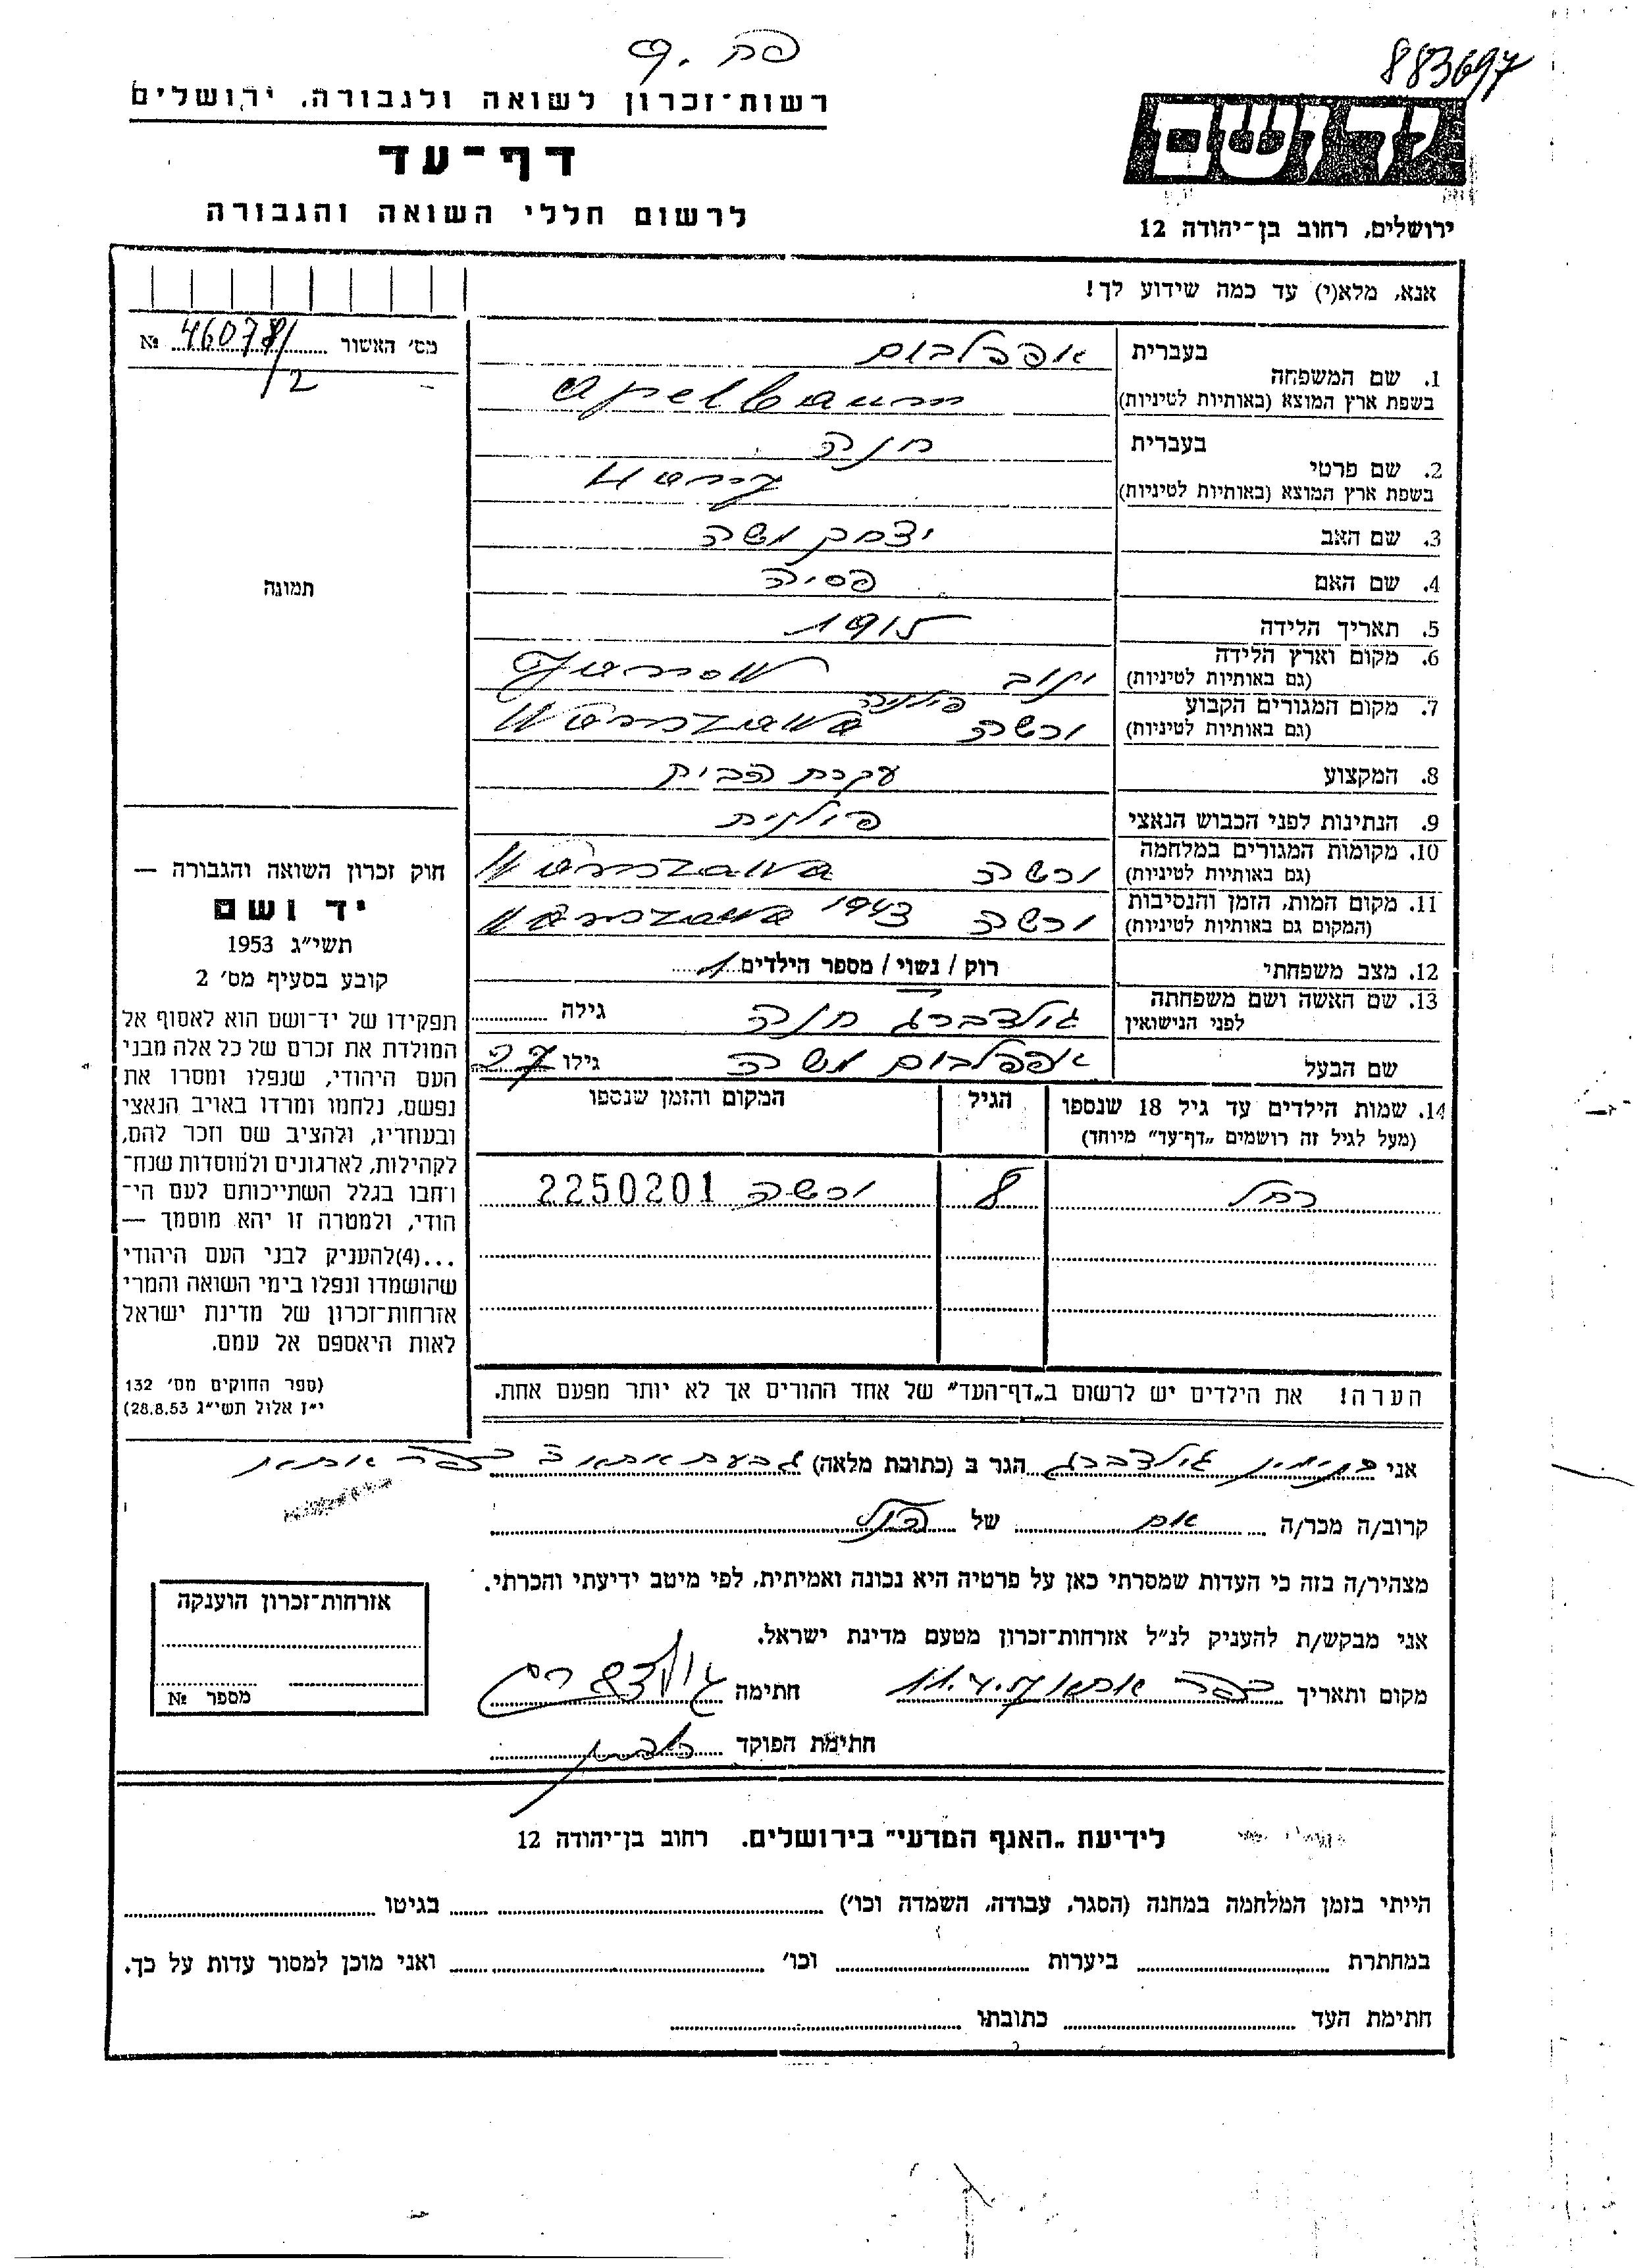 פח. 9
883697
רשות־זכרון לשואה ולגבורה, ירושלים
דף־עד
ידושם
לרשום חללי השואה והגבורה
ירושלים, רחוב בן־יהודה 12
אנא, מלא(י) עד כמה שידוע לך!
מס' האשור 46078/2 №
בעברית אפפלבום
1. שם המשפחה
בשפת ארץ המוצא (באותיות לטיניות) apelbaum
בעברית חנה
2. שם פרטי
בשפת ארץ המוצא (באותיות לטיניות)
3. שם האב יצחק משה
4. שם האם פסיה
תמונה
5. תאריך הלידה 1915
6. מקום וארץ הלידה
(גם באותיות לטיניות) ינוב Janow
פולניה
7. מקום המגורים הקבוע
(גם באותיות לטיניות) ורשה Warszawa
8. המקצוע עקרת הבית
9. הנתינות לפני הכבוש הנאצי פולנית
10. מקומות המגורים במלחמה
(גם באותיות לטיניות) ורשה Warszawa
11. מקום המות, הזמן והנסיבות
(המקום גם באותיות לטיניות) ורשה 1943 Warszawa
12. מצב משפחתי רוק / נשוי / מספר הילדים 1
13. שם האשה ושם משפחתה
לפני הנישואין גולדברג חנה גילה
שם הבעל אפפלבום משה גילו 27
14. שמות הילדים עד גיל 18 שנספו הגיל המקום והזמן שנספו
(מעל לגיל זה רושמים „דף־עד" מיוחד)
רחל 8 ורשה 2250201
הערה! את הילדים יש לרשום ב„דף־העד" של אחד ההורים אך לא יותר מפעם אחת.
חוק זכרון השואה והגבורה —
יד ושם
תשי"ג 1953
קובע בסעיף מס' 2
תפקידו של יד־ושם הוא לאסוף אל
המולדת את זכרם של כל אלה מבני
העם היהודי, שנפלו ומסרו את
נפשם, נלחמו ומרדו באויב הנאצי
ובעוזריו, ולהציב שם וזכר להם,
לקהילות, לארגונים ולמוסדות שנח־
רבו בגלל השתייכותם לעם הי־
הודי, ולמטרה זו יהא מוסמך —
...(4)להעניק לבני העם היהודי
שהושמדו ונפלו בימי השואה והמרי
אזרחות־זכרון של מדינת ישראל
לאות היאספם אל עמם.
(ספר החוקים מס' 132
י"ז אלול תשי"ג 28.8.53)
אני בנימין גולדברג הגר ב (כתובת מלאה) גבעת אתא כפר אתא
קרוב/ה מכר/ה אח של הנ"ל
מצהיר/ה בזה כי העדות שמסרתי כאן על פרטיה היא נכונה ואמיתית, לפי מיטב ידיעתי והכרתי.
אני מבקש/ת להעניק לנ"ל אזרחות־זכרון מטעם מדינת ישראל.
מקום ותאריך כפר אתא חתימה גולדברג
חתימת הפוקד
אזרחות־זכרון הוענקה
מספר №
לידיעת „האנף המדעי" בירושלים. רחוב בן־יהודה 12
הייתי בזמן המלחמה במחנה (הסגר, עבודה, השמדה וכו') בגיטו
במחתרת ביערות וכו' ואני מוכן למסור עדות על כך.
חתימת העד כתובתו